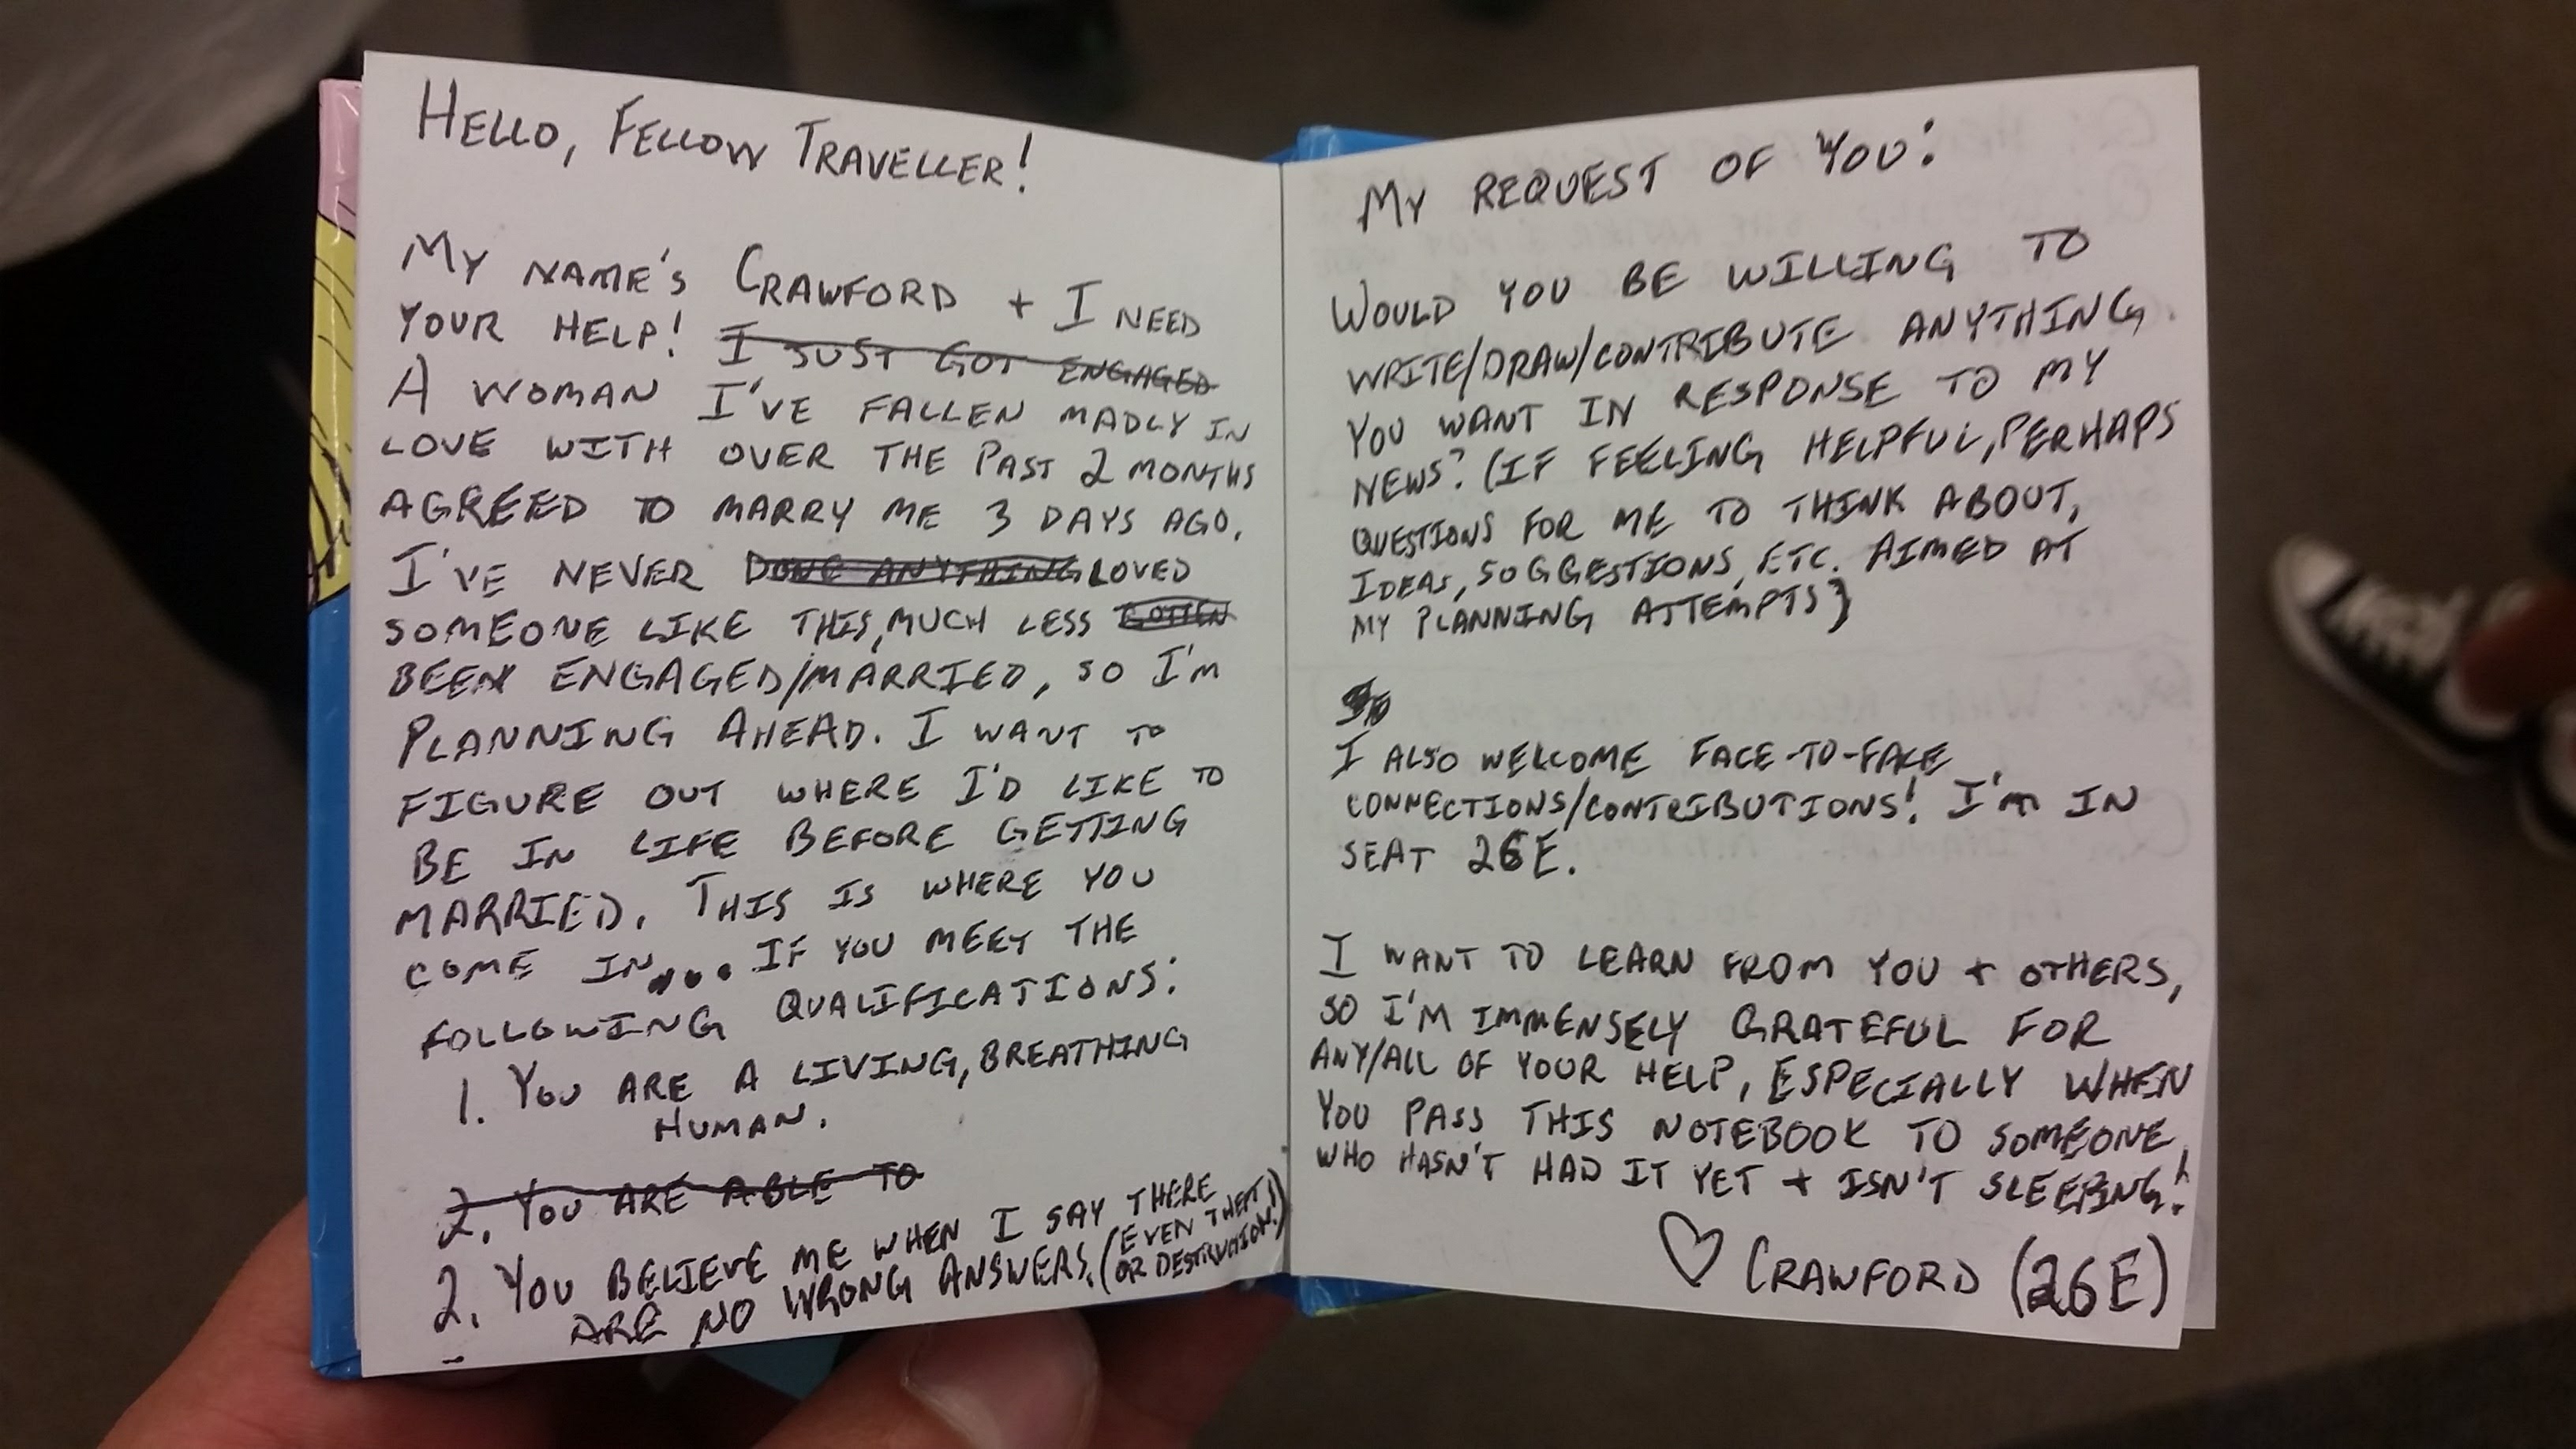 HELLO, FELLOW TRAVELLER!
MY NAME'S CRAWFORD + I NEED
YOUR HELP! I JUST GOT ENGAGED
A WOMAN I'VE FALLEN MADLY IN
LOVE WITH OVER THE PAST 2 MONTHS
AGREED TO MARRY ME 3 DAYS AGO.
I'VE NEVER DONE ANYTHING LOVED
SOMEONE LIKE THIS, MUCH LESS GOTTEN
BEEN ENGAGED/MARRIED, SO I'M
PLANNING AHEAD. I WANT TO
FIGURE OUT WHERE I'D LIKE TO
BE IN LIFE BEFORE GETTING
MARRIED. THIS IS WHERE YOU
COME IN... IF YOU MEET THE
FOLLOWING QUALIFICATIONS:
1. YOU ARE A LIVING, BREATHING
HUMAN.
2. YOU ARE ABLE TO
2. YOU BELIEVE ME WHEN I SAY THERE
ARE NO WRONG ANSWERS. (EVEN THEFT
OR DESTRUCTION!)
MY REQUEST OF YOU:
WOULD YOU BE WILLING TO
WRITE/DRAW/CONTRIBUTE ANYTHING
YOU WANT IN RESPONSE TO MY
NEWS? (IF FEELING HELPFUL, PERHAPS
QUESTIONS FOR ME TO THINK ABOUT,
IDEAS, SUGGESTIONS, ETC. AIMED AT
MY PLANNING ATTEMPTS)
I ALSO WELCOME FACE-TO-FACE
CONNECTIONS/CONTRIBUTIONS! I'M IN
SEAT 26E.
I WANT TO LEARN FROM YOU + OTHERS,
SO I'M IMMENSELY GRATEFUL FOR
ANY/ALL OF YOUR HELP, ESPECIALLY WHEN
YOU PASS THIS NOTEBOOK TO SOMEONE
WHO HASN'T HAD IT YET + ISN'T SLEEPING!
♡ CRAWFORD (26E)